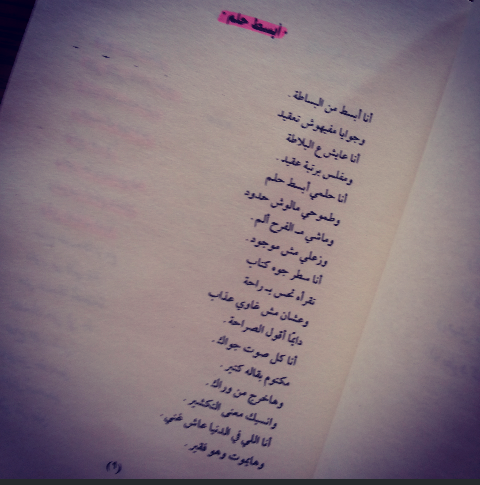 "أبسط حلم"
أنا أبسط من البساطة .
وجوايا مفيهوش تعقيد
أنا عايش ع البلاطة
ومفلس برتبة عقيد .
أنا حلمي أبسط حلم
وطموحي مالوش حدود
وماشي مـ الفرح ألم .
وزعلي مش موجود .
أنا سطر جوه كتاب
تقرأه تحس بـ راحة
وعشان مش غاوي عذاب
دايمًا أقول الصراحة .
أنا كل صوت جواك .
مكتوم بقاله كتير .
وهاخرج من وراك .
وانسيك معنى التكشير .
أنا اللي في الدنيا عاش غني .
وهايموت وهو فقير .
(٩)